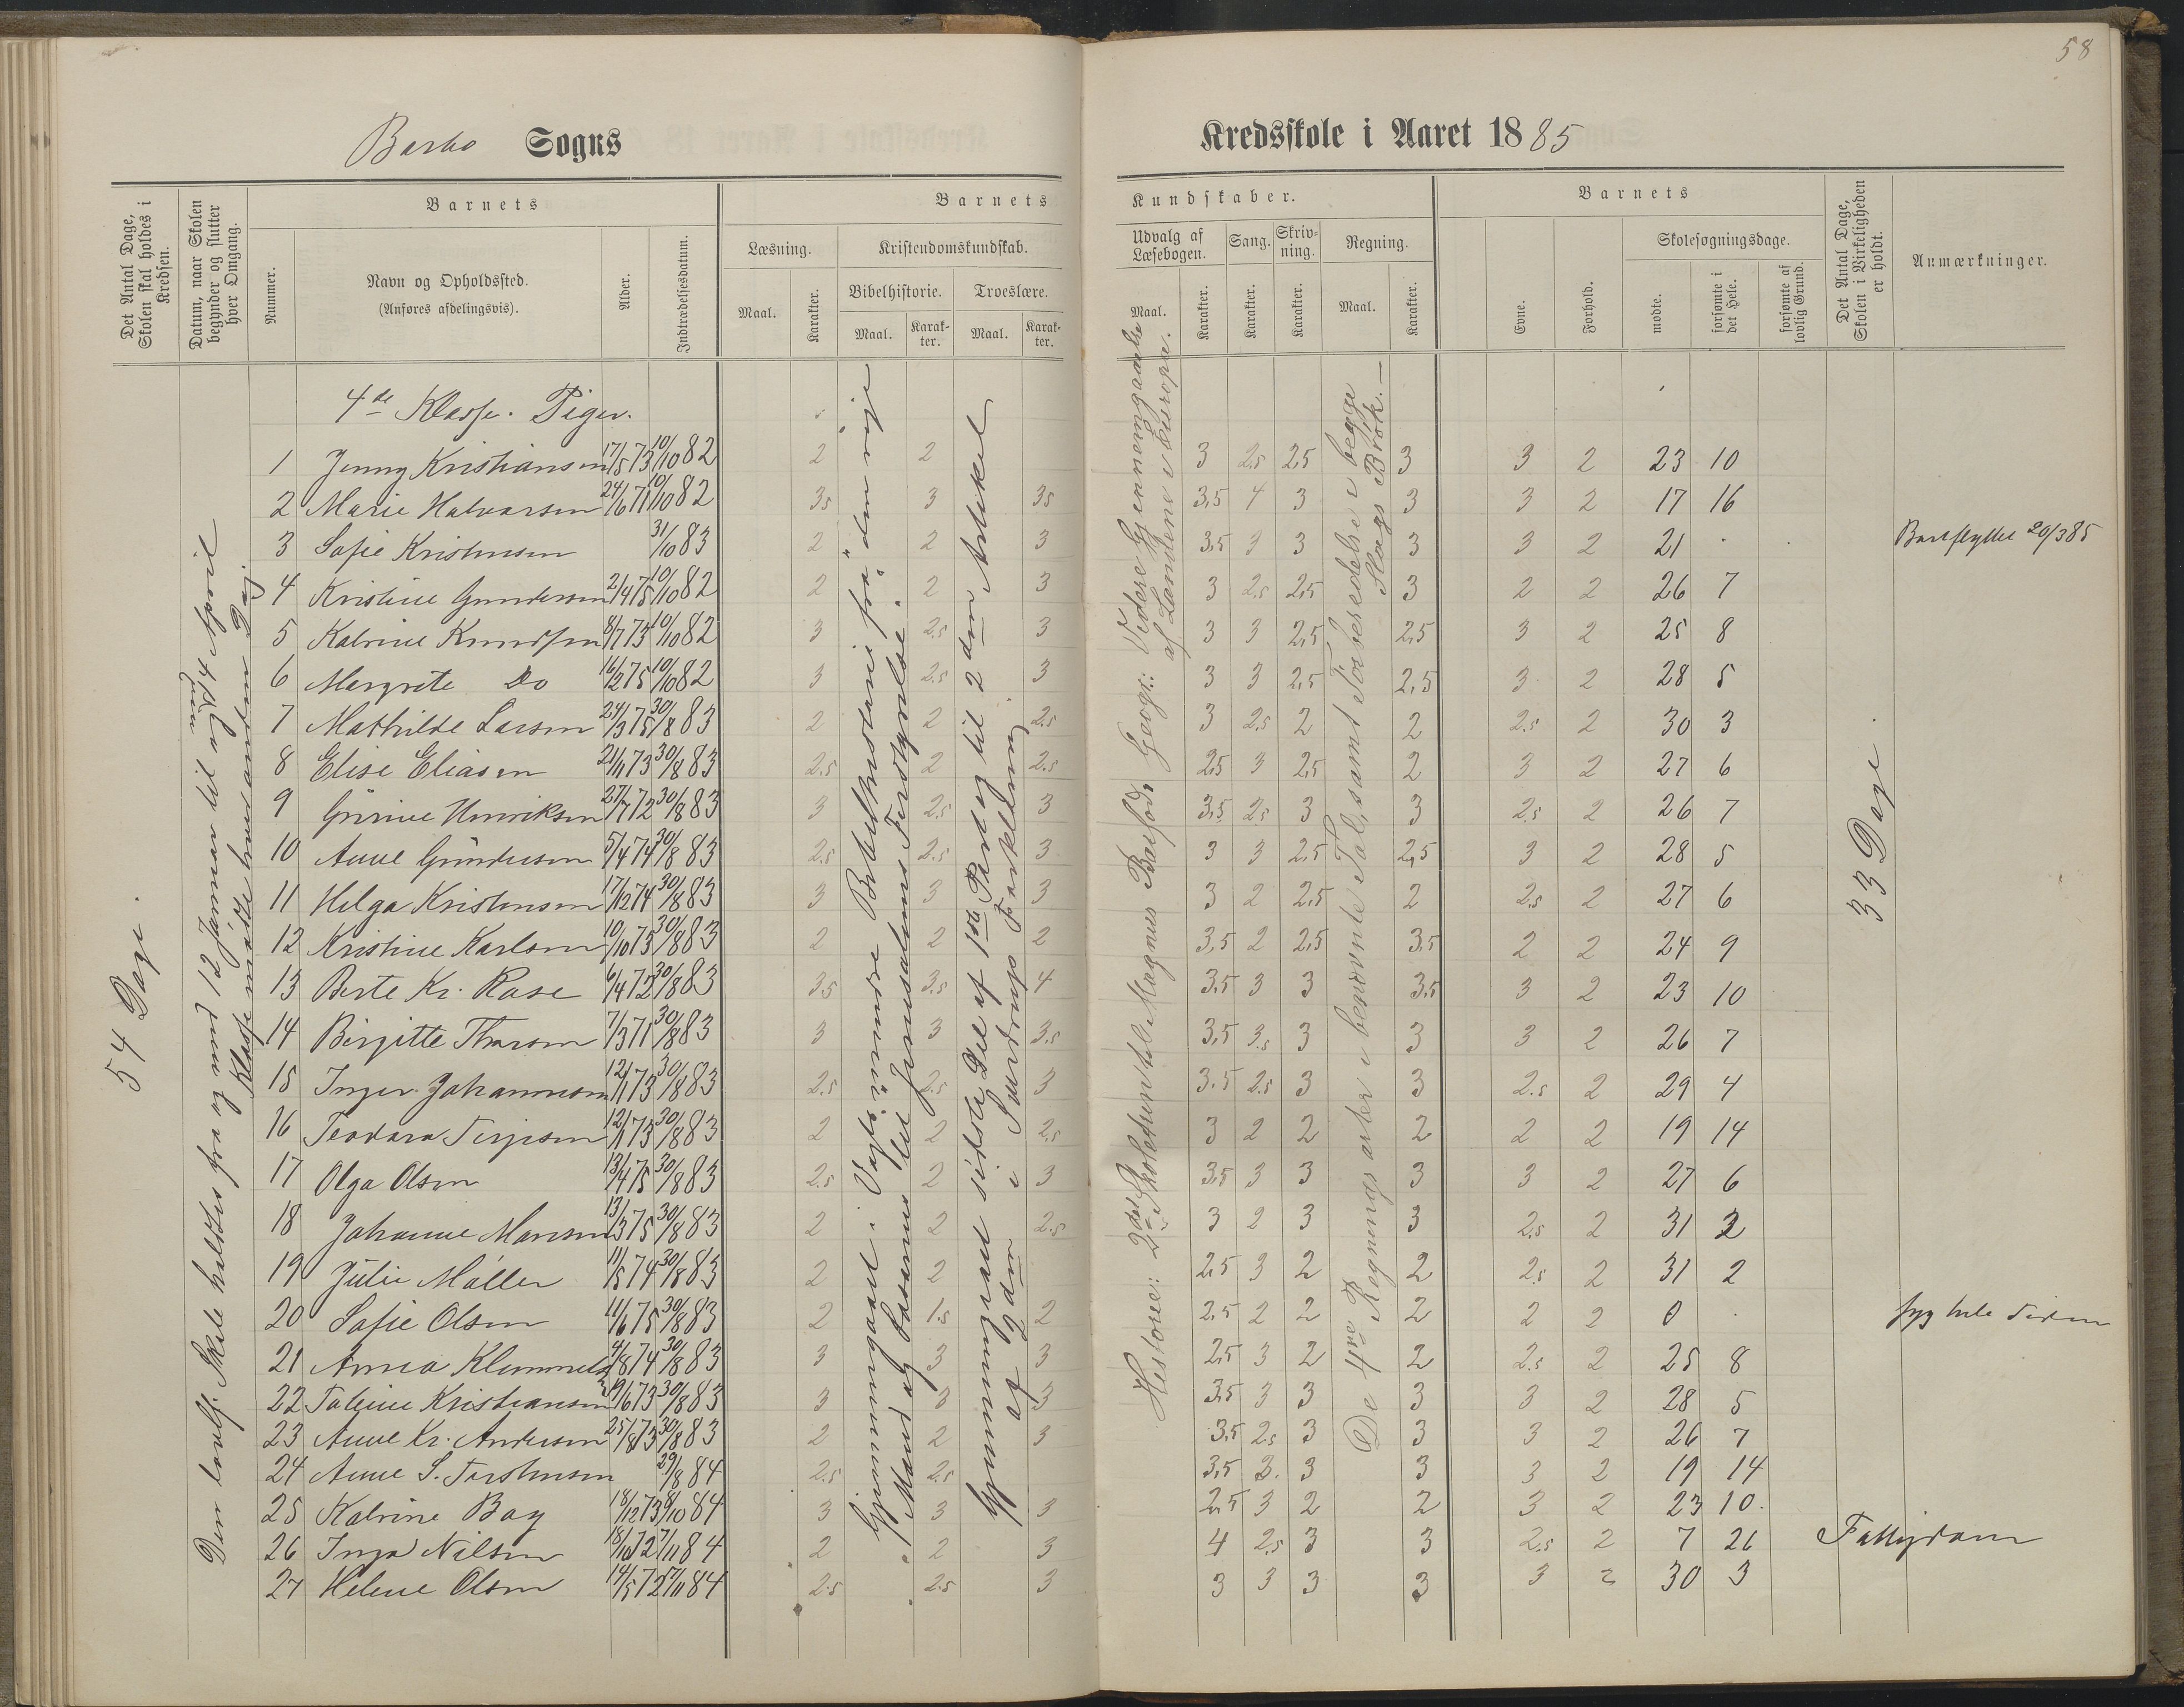 58
Barbo Sogns Kredsskole i Aaret 1885
Det Antal Dage, Skolen skal holdes i Kredsen.
Datum, naar Skolen begynder og slutter hver Omgang.
Barnets
Nummer.
Navn og Opholdssted.
(Anføres afdelingsvis).
Alder.
Indtrædelsesdatum.
Barnets Kundskaber.
Læsning.
Maal.
Karakter.
Kristendomskundskab.
Bibelhistorie.
Maal.
Karakter.
Troeslære.
Maal.
Karakter.
Udvalg af Læsebogen.
Maal.
Karakter.
Sang.
Karakter.
Skrivning.
Karakter.
Regning.
Maal.
Karakter.
Barnets
Evne.
Forhold.
Skolesøgningsdage.
mødte.
forsømte i det Hele.
forsømte af lovlig Grund.
Det Antal Dage, Skolen i Virkeligheden er holdt.
Anmærkninger.
54 Dage.
Skole holdtes fra og med 12 Januar til og med 4 April
Klasse mødte hver anden Dag
4de Klasse. Piger.
1 Jenny Kristiansen 17/5 73 10/10 82 2 2 3 2,5 2,5 3 3 2 23 10
2 Marie Halvorsen 24/6 71 10/10 82 3,5 3 3,5 3,5 4 3 3 3 2 17 16
3 Sofie Kristensen 31/10 83 2 2 3 3,5 3 3 3 3 2 21 Bortflyttet 20/3 85
4 Kristine Gundersen 2/4 75 10/10 82 2 2 3 3 2,5 2,5 3 2 2 26 7
5 Katrine Knudsen 8/7 73 10/10 82 3 2,5 3 3 3 2,5 2,5 3 2 25 8
6 Margrete Do 16/2 75 10/10 82 3 2,5 3 3 3 2,5 2,5 3 2 28 5
7 Mathilde Larsen 24/3 75 30/8 83 2 2 2,5 3 2,5 2 2 2,5 2 30 3
8 Elise Eliasen 21/1 73 30/8 83 2,5 2 2,5 2,5 3 2,5 2 3 2 27 6
9 Grine Henriksen 27/7 72 30/8 83 3 2,5 3 3,5 2,5 3 3 2,5 2 26 7
10 Anne Gundersen 5/4 74 30/8 83 2,5 2,5 3 3 3 2,5 2,5 3 2 28 5
11 Helga Kristensen 17/12 74 30/8 83 3 3 3 3 2 2,5 2 2,5 2 27 6
12 Kristine Karlsen 10/10 73 30/8 83 2 2 2 3,5 2 2,5 3,5 2 2 24 9
13 Berte Kr. Rase 6/4 72 30/8 83 3,5 3,5 4 3,5 3 3 3,5 3 2 23 10
14 Birgitte Thorsen 7/3 71 30/8 83 3 3 3,5 3,5 3,5 3 3 3 2 26 7
15 Inger Johannesen 12/1 73 30/8 83 2,5 2,5 3 3,5 2,5 3 3 2,5 2 29 4
16 Teodora Terjesen 12/1 73 30/8 83 2 2 2,5 3 2 2 2 2 2 19 14
17 Olga Olsen 13/4 75 30/8 83 2,5 2 3 3,5 3 3 3 3 2 27 6
18 Johanne Monsen 13/3 75 30/8 83 2 2 2,5 3 2 3 3 2,5 2 31 2
19 Julie Møller 11/5 74 30/8 83 2 2 2,5 3 2 2 2,5 2 31 2
20 Sofie Olsen 11/6 75 30/8 83 2 1,5 2 2,5 2 2 2 2 2 0 syg hele Tiden
21 Anna 4/8 74 30/8 83 3 3 3 2,5 3 2 2 2,5 2 25 8
22 Taline Kristiansen 19/6 73 30/8 83 3 3 3 3,5 3 3 3 3 2 28 5
23 Anne Kr. Andersen 25/8 73 30/8 83 2 2 3 3,5 2,5 3 3 3 2 26 7
24 Anne S. Torstensen 29/8 84 2,5 2,5 3,5 3. 3 3 3 2 19 14
25 Katrine Bay 18/12 73 8/10 84 3 3 3 2,5 3 2 2 3 2 23 10.
26 Inga Nilsen 18/10 72 7/11 84 2 2 3 4 2,5 3 3 2,5 2 7 26 Fattigdom
27 Helene Olsen 14/5 72 7/11 84 2,5 2,5 3 3 3 3 3 3 2 30 3
Gjennemgaaet i Vogts mindre Bibelhistorie fra "den rige Mand og Lasarus" til Jerusalems Forstyrrelse.
Gjennemgaaet sidste Del af 1ste Part og til 2den Artikel af 2den i Sverdrups Forklaring
Historie: 2det Skoletrin hele Magnus Barfods Geogr.: Videre Gjennemgaaelse af Landene i Europa.
De 4re Regningsarter i benævnte Tal, samt Forberedelse i begge Slags Brøk. —
33 Dage.